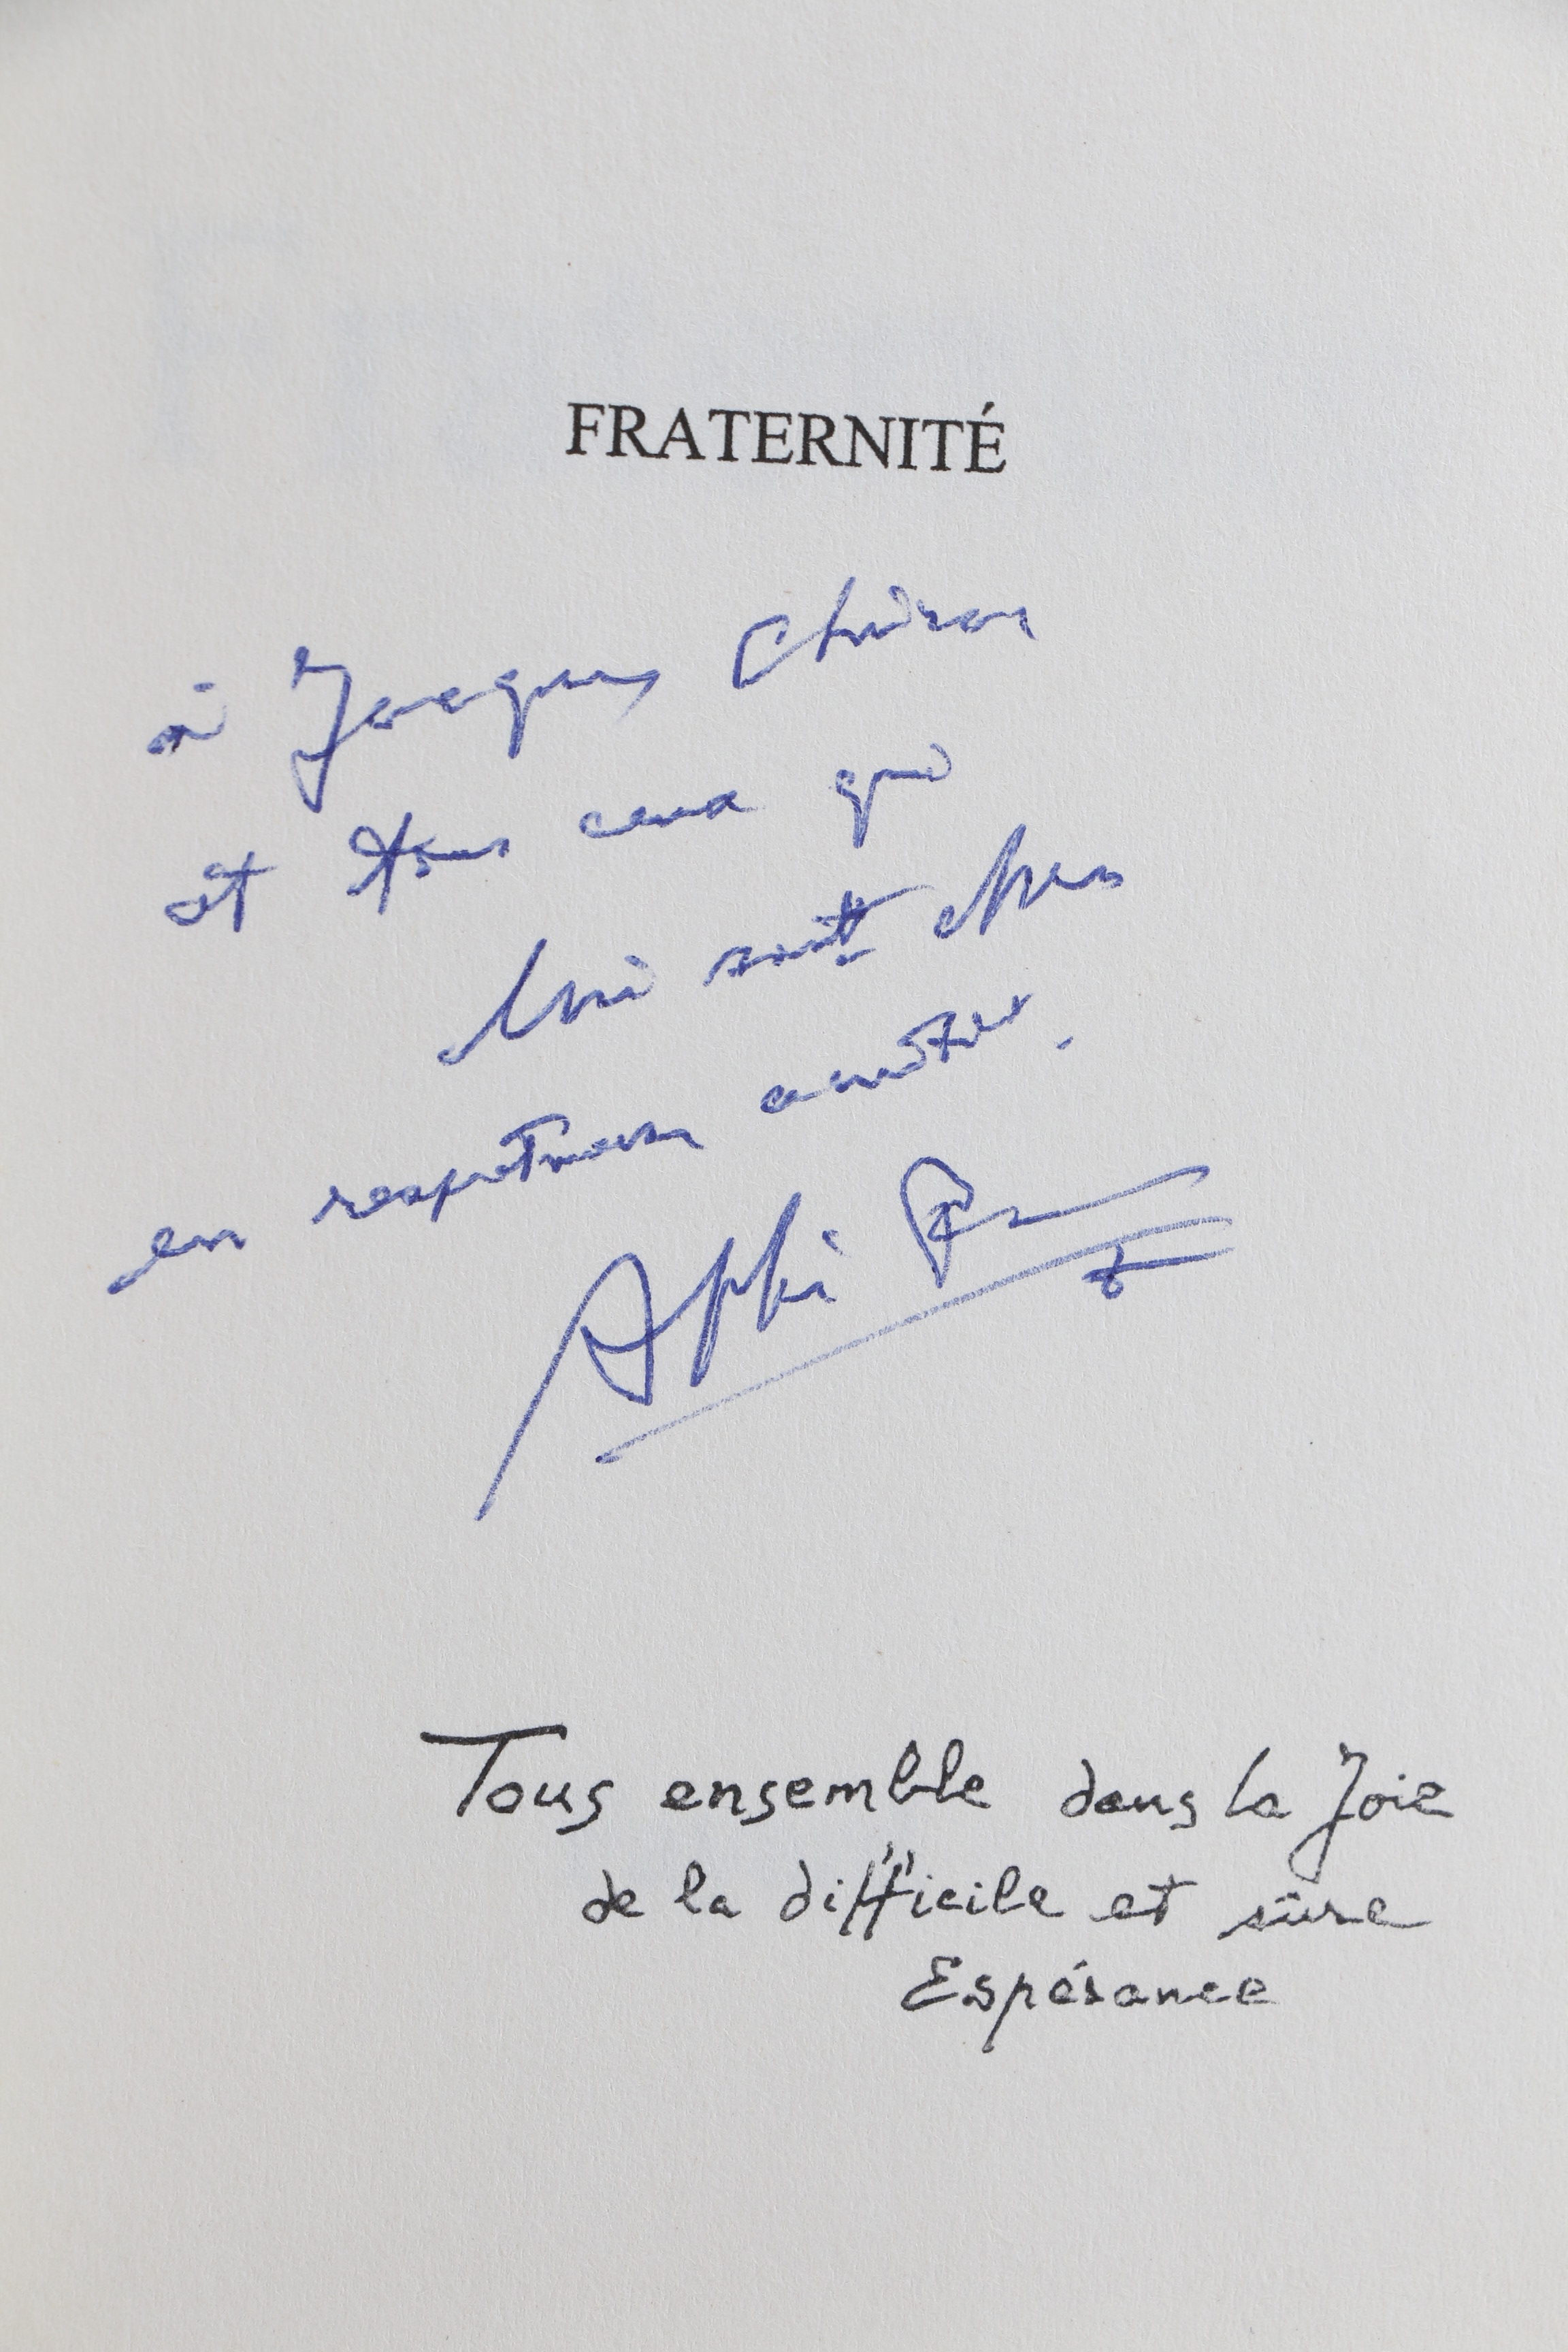 FRATERNITÉ
à Jacques
et tous ceux qui
lui sont chers
en respectueuse amitié.
Abbé Pierre
Tous ensemble dans la Joie
de la difficile et sûre
Espérance